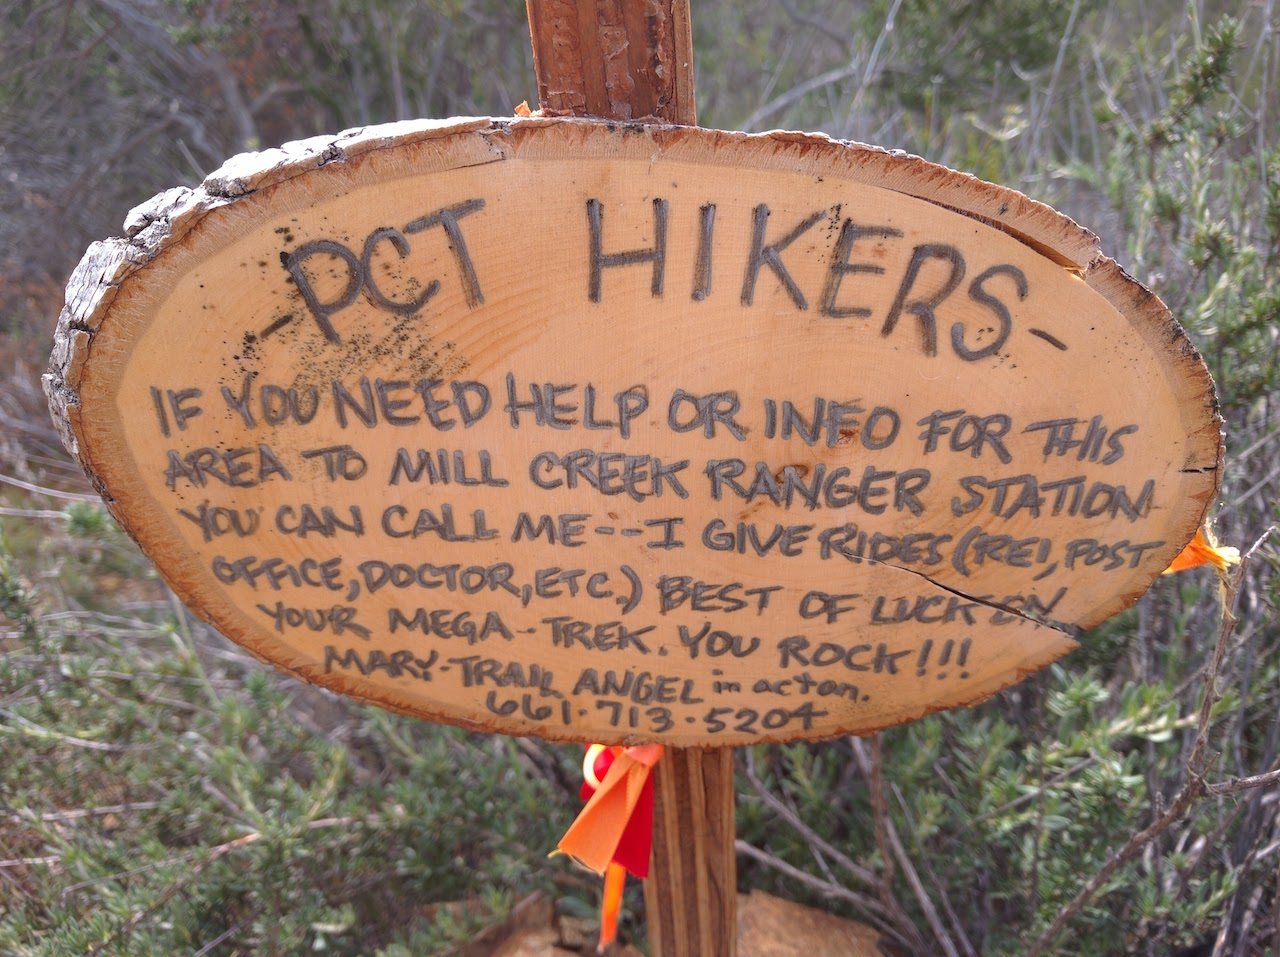 -PCT HIKERS-
IF YOU NEED HELP OR INFO FOR THIS
AREA TO MILL CREEK RANGER STATION
YOU CAN CALL ME--I GIVE RIDES (REI, POST
OFFICE, DOCTOR, ETC.) BEST OF LUCK ON
YOUR MEGA-TREK. YOU ROCK!!!
MARY-TRAIL ANGEL in acton.
661-713-5204